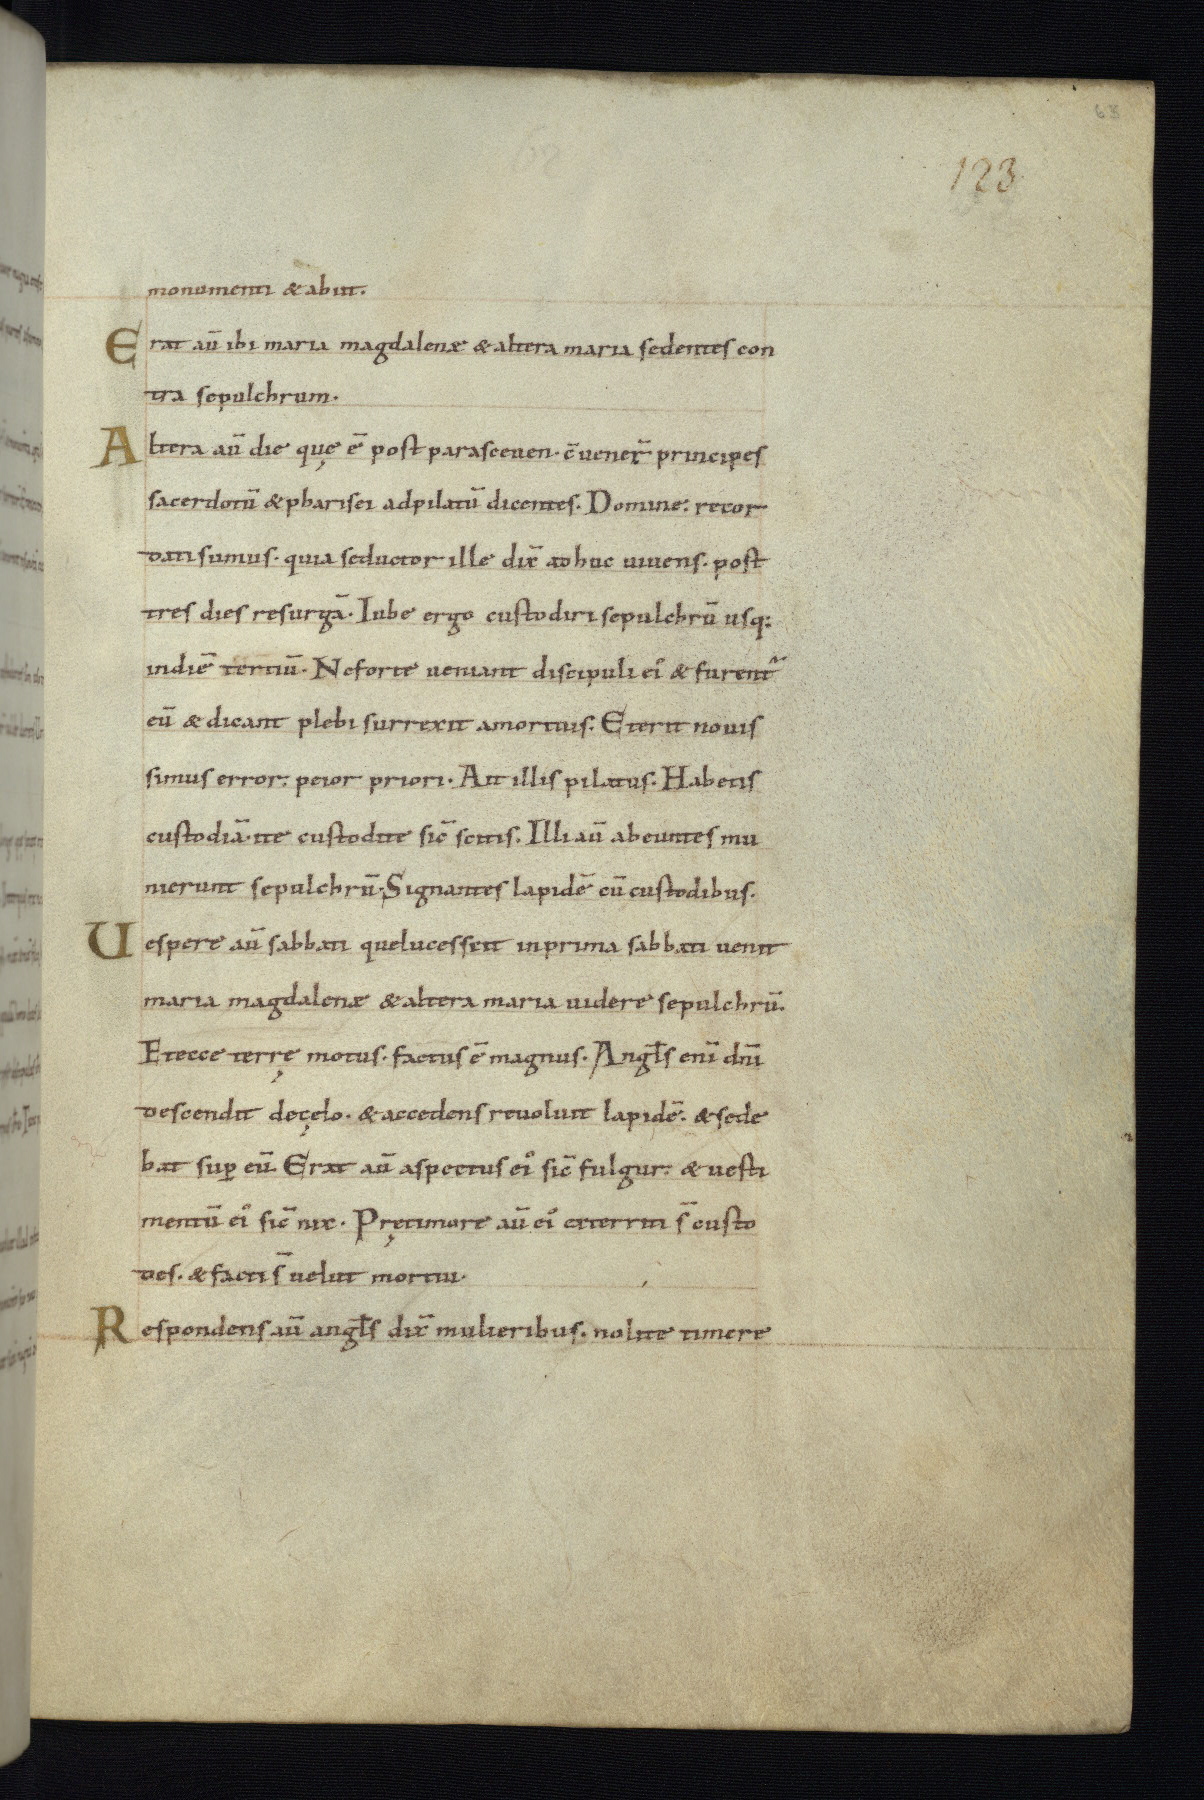 63
123
monumenti & abiit.
Erat aū ibi maria magdalenæ & altera maria sedentes con
tra sepulchrum.
Altera aū die quę ē post parasceuen. c̄uener̄ principes
sacerdotū & pharisei adpilatū dicentes. Domine: recor
dati sumus. quia seductor ille dix̄ adhuc uiuens. post
tres dies resurgā. Iube ergo custodiri sepulchrū usq:
indiē tertiū. Neforte ueniant discipuli ei᾽ & furent᷑
eū & dicant plebi surrexit amortuis. Eterit nouis
simus error: peior priori. Ait illis pilatus. Habetis
custodiā. ite custodite sic̄ scitis. Illi aū abeuntes mu
nierunt sepulchrū. Signantes lapidē cū custodibus.
Uespere aū sabbati quelucessit inprima sabbati uenit
maria magdalenæ & altera maria uidere sepulchrū.
Etecce terrę motus. factus ē magnus. Angl̄s eni̅ dn̄i
descendit deçelo. & accedens reuoluit lapidē. & sede
bat sup̱ eū. Erat aū aspectus ei᾽ sic̄ fulgur: & uesti
mentū ei᾽ sic̄ nix. Prętimore aū ei᾽ exterriti s̄ custo
des. & facti s̄ uelut mortui.
Respondens aū angl̄s dix̄ mulieribus. nolite timere